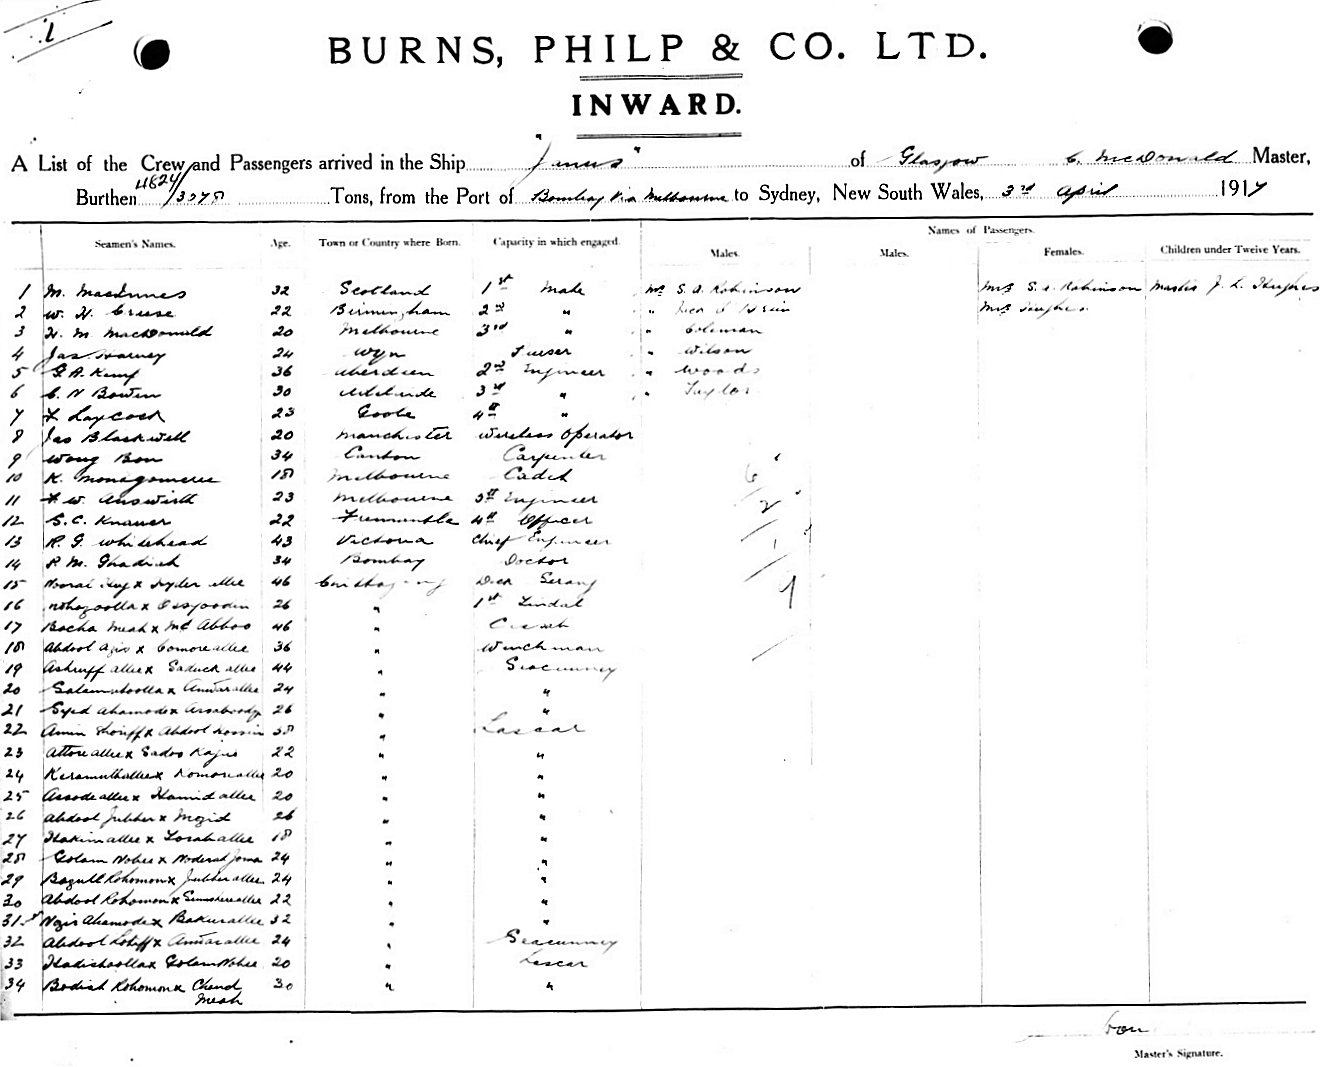 1
BURNS, PHILP & CO. LTD.
INWARD.
A List of the Crew and Passengers arrived in the Ship "Janus" of Glasgow C. McDonald Master,
Burthen 4824/3078 Tons, from the Port of Bombay Via Melbourne to Sydney, New South Wales, 3rd April 1917
Names of Passengers.
Seamen's Names. Age. Town or Country where Born. Capacity in which engaged. Males. Males. Females. Children under Twelve Years.
1 M. MacInnes 32 Scotland 1st Mate Mr S. A. Robinson Mrs S. A. Robinson Master J. L. Hughes
2 W. H. Cruse 22 Birmingham 2nd " " Mrs Hughes
3 H. M. MacDonald 20 Melbourne 3rd " " Coleman
4 Jas 24 " Wilson
5 G. A. Kemp 36 Aberdeen 2nd Engineer " Woods
6 C. N Bowen 30 Adelaide 3rd " " Taylor
7 F. Laycock 23 Goole 4th "
8 Jas Blackwell 20 Manchester Wireless Operator
9 Wong Bon 34 Canton Carpenter
10 K. 18 Melbourne Cadet
11 F. W. 23 Melbourne 5th Engineer
12 S. C. Knauer 22 Fremantle 4th Officer
13 R. G. Whitehead 43 Victoria Chief Engineer
14 P. M. Ghadiah 34 Bombay Doctor
15 x 46 Deck Serang
16 x 26 " 1st Tindal
17 Bacha Meah x Md Abbas 46 "
18 Abdool Azis x Comoreallee 36 " Winchman
19 Ashruff allee x Saduck allee 44 " Seacunney
20 x Anwarallee 24 " "
21 Syed Ahamode x 26 " "
22 Amin Shoriff x Abdool 38 " Lascar
23 Attoreallee x 22 " "
24 Keramuthallee x 20 " "
25 Assodeallee x Hamid allee 20 " "
26 Abdool Jubber x Mozid 26 " "
27 Hakimallee x 18 " "
28 Golam Nobee x 24 " "
29 Bozull Rohomon x Jubberallee 24 " "
30 Abdool Rohomon x 22 " "
31 Nozir Ahamode x Bakurallee 32 " "
32 Abdool Lotiff x Anwarallee 24 " Seacunney
33 x Golam Nobee 20 " Lascar
34 Bodiah Rohomon x Chand 30 " "
Meah
Master's Signature.